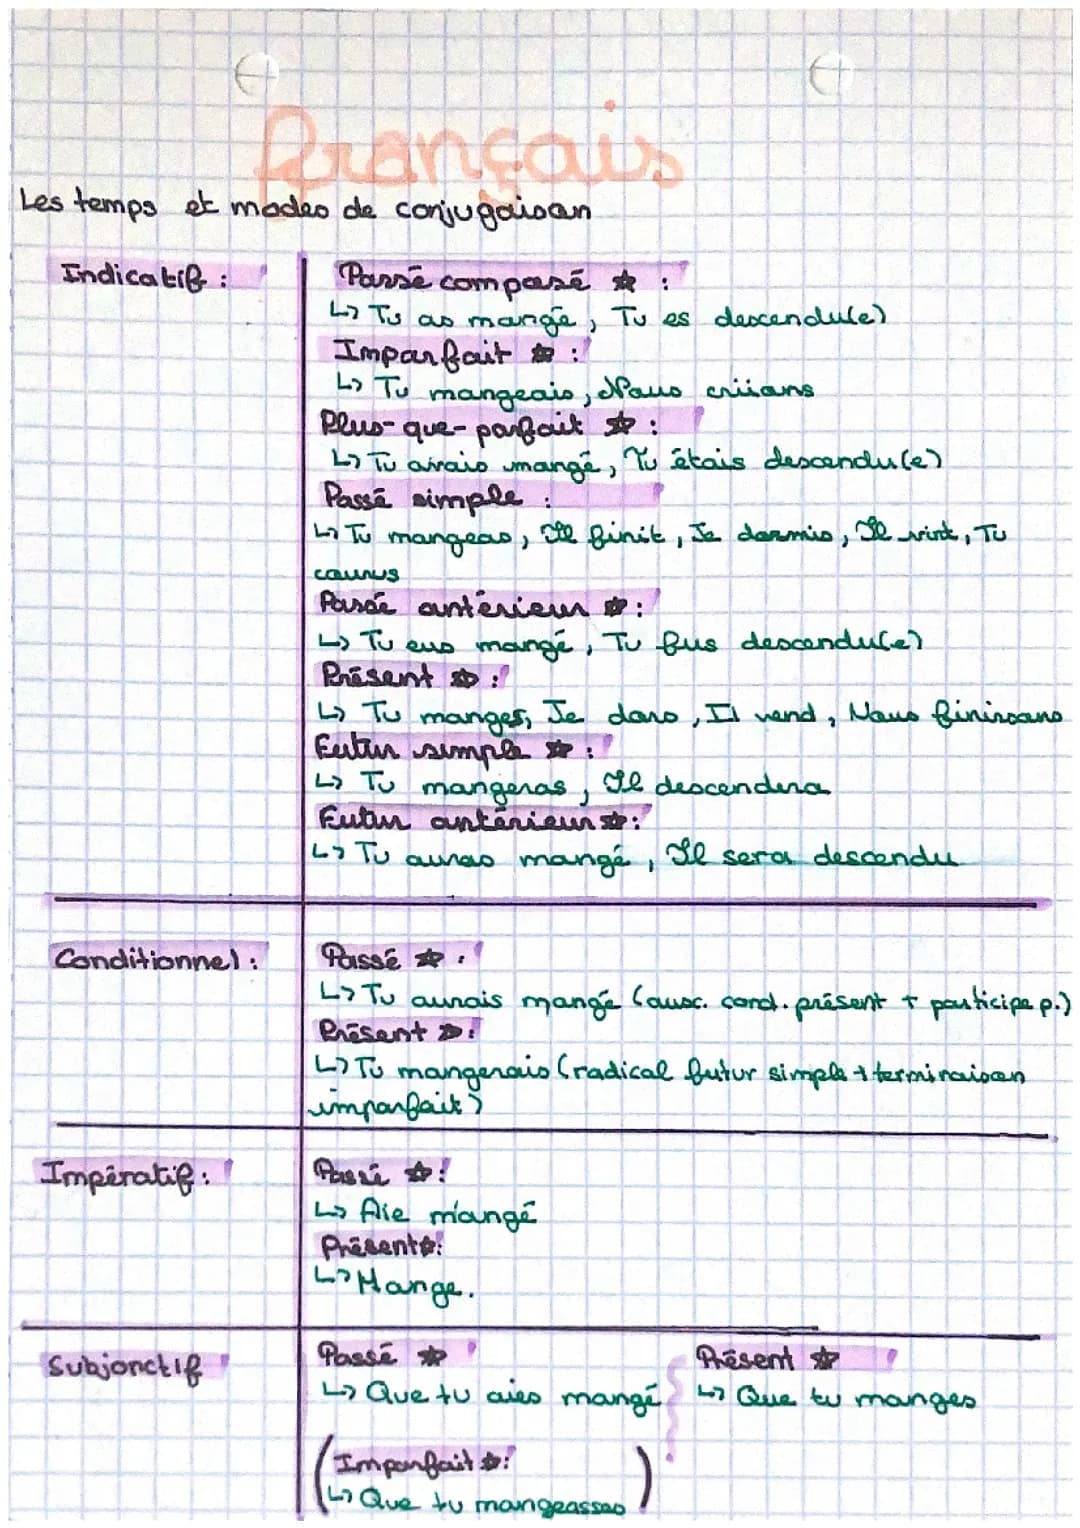 français
Les temps et modes de conjugaison
Indicatif :
Passé composé ☆ :
↳ Tu as mangé, Tu es descendu(e)
Imparfait ☆ :
↳ Tu mangeais, Nous criions
Plus-que-parfait ☆ :
↳ Tu avais mangé, Tu étais descendu(e)
Passé simple :
↳ Tu mangeas, Il finit, Je dormis, Il vint, Tu
courus
Passé antérieur ☆ :
↳ Tu eus mangé, Tu fus descendu(e)
Présent ☆ :
↳ Tu manges, Je dors, Il vend, Nous finissons
Futur simple ☆ :
↳ Tu mangeras, Il descendra
Futur antérieur ☆ :
↳ Tu auras mangé, Il sera descendu
Conditionnel :
Passé ☆ :
↳ Tu aurais mangé (aux. cond. présent + participe p.)
Présent ☆ :
↳ Tu mangerais (radical futur simple + terminaison
imparfait)
Impératif :
Passé ☆ :
↳ Aie mangé
Présent ☆ :
↳ Mange.
Subjonctif
Passé ☆
↳ Que tu aies mangé
Présent ☆
↳ Que tu manges
(Imparfait ☆ :
↳ Que tu mangeasses)